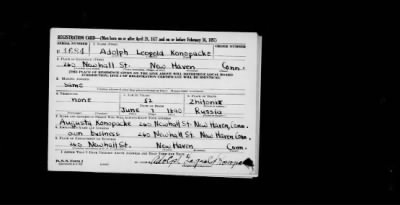 REGISTRATION CARD—(Men born on or after April 28, 1877 and on or before February 16, 1897)
SERIAL NUMBER 1. NAME (Print) ORDER NUMBER
Adolph Leopold Konopacke
2. PLACE OF RESIDENCE (Print)
260 Newhall St. New Haven Conn.
[THE PLACE OF RESIDENCE GIVEN ON THE LINE ABOVE WILL DETERMINE LOCAL BOARD
JURISDICTION; LINE 2 OF REGISTRATION CERTIFICATE WILL BE IDENTICAL]
3. MAILING ADDRESS
Same
4. TELEPHONE 5. AGE IN YEARS 6. PLACE OF BIRTH
none Zhitomir
DATE OF BIRTH
June Russia
7. NAME AND ADDRESS OF PERSON WHO WILL ALWAYS KNOW YOUR ADDRESS
Augusta Konopacke 260 Newhall St. New Haven, Conn.
8. EMPLOYER'S NAME AND ADDRESS
own business 260 Newhall St. New Haven Conn.
9. PLACE OF EMPLOYMENT OR BUSINESS
260 Newhall St. New Haven Conn.
I AFFIRM THAT I HAVE VERIFIED ABOVE ANSWERS AND THAT THEY ARE TRUE.
Adolph Leopold Konopacke